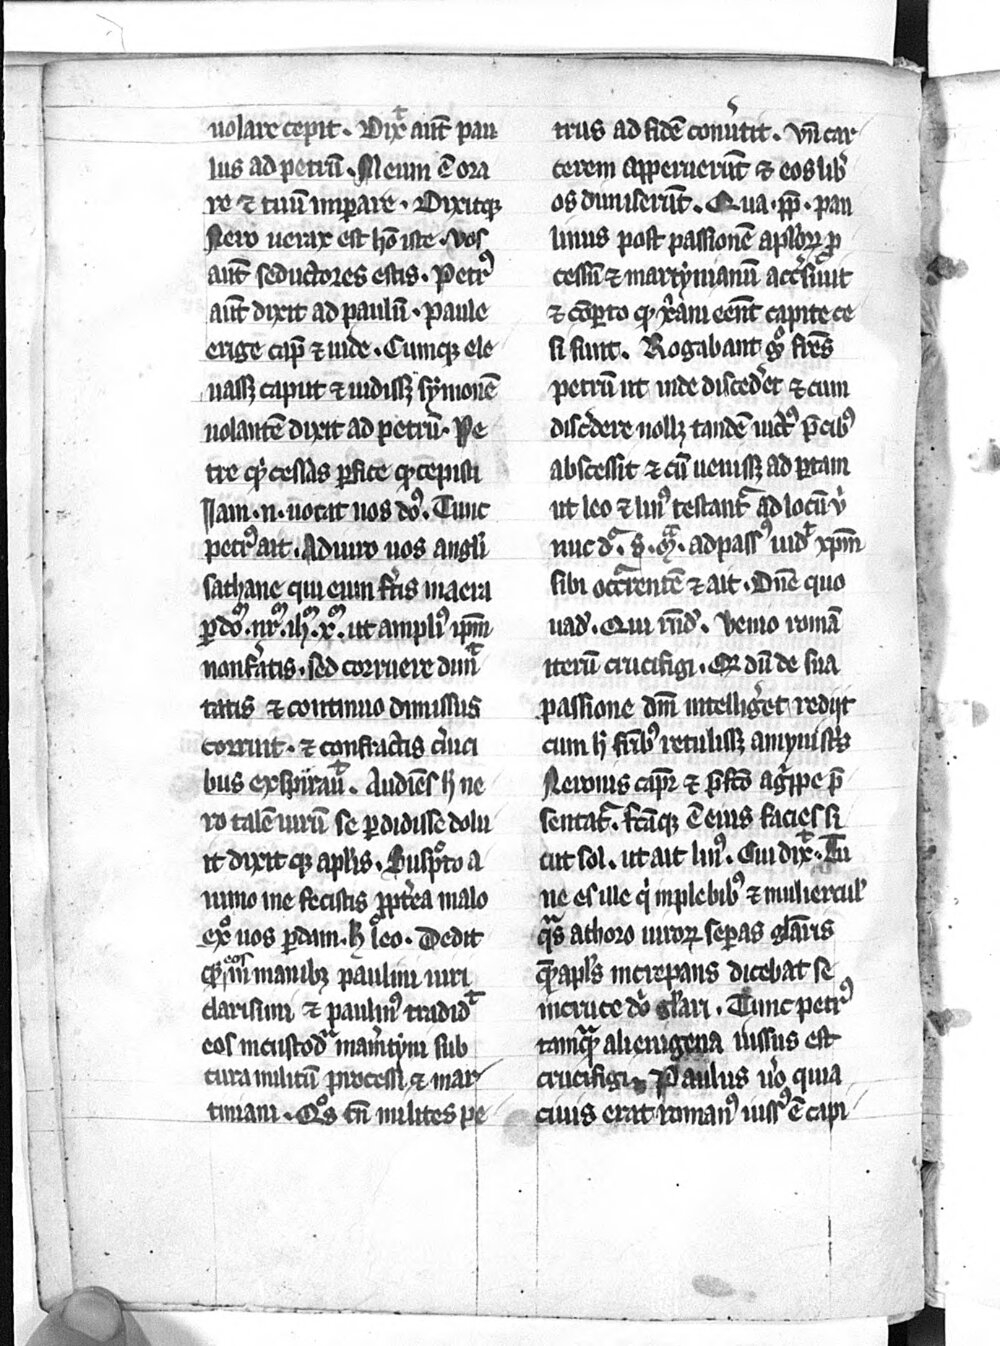 uolare cepit. Dix̄ᵗ aut̄ pau
lus ad petrū. Meum ē ora
re ⁊ tuū imꝑare. Dixitqꝫ
Nero uerax est hō iste. vos
aut̄ seductores estis. Petrꝰ
aut̄ dixit ad paulū. paule
erige cap̄ ⁊ uide. Cumqꝫ ele
uassꝫ caput ⁊ uidissꝫ symonē
uolantē dixit ad petrū. Pe
tre qͥd cessas ꝑfice qd̓ cepisti
Iam .n. uocat nos dn̄s. Tunc
petrꝰ ait. Adiuro uos angli
sathane qui eum fertis in aera
ꝑ do᷑m. nr᷑m. ih᷑m. x᷑m. ut ampliꝰ ip̄m
non fͣtis. sed corruere dimitᵗ
tatis ⁊ continuo dimissus
corruit. ⁊ confractis cͥuci
bus expirauᵗ. Audiēs h̄ ne
ro talē uirū se ꝑdidisse dolu
it dixit qꝫ apl̄is. Suspc̄to a
nimo me fecistis ꝓpt̓ea malo
exͦ uos ꝑdam. h̄ leo. Dedit
qꝫ eos in manibꝫ paulini uiri
clarisimi ⁊ paulinꝰ tradidᵗ
eos in custodͣ mam̓tyni sub
cura militū processi ⁊ mar
tiniani. Qͦs tn̄ milites pe
trus ad fidē conu̓tit. Vn̄ car
cerem apperuerūt ⁊ eos lib̓
os dimiserūt. Qua .ꝓp̄. pau
linus post passionē apl̓oꝝ ꝓ
cessū ⁊ martynianū accersiuit
⁊ cōꝑto qd̓ xͣani eēnt capite ce
si sunt. Rogabant gͦ fr̄es
petrū ut inde disced̓et ⁊ cum
disced̓e nollꝫ tandē uictꝰ p̄cibꝰ
abscessit ⁊ cū uenissꝫ ad ꝑtam
ut leo ⁊ linꝰ testantͬ ad locū ū
nuc dͬ. s̄. mͣ. ad passꝰ uid̓ xp̄m
sibi occͬrentē ⁊ ait. Dn̄e quo
uad̓. Qui rn̄d̓. Venio romā
iterū crucifigi. Qͬ dū de sua
passione dcm̄ intellig̓et rediit
cum h̄ frībꝰ retulissꝫ a mynistͥs
Neronis capͬ ⁊ p̄fc̄o agͥppe p̄
sentatͬ. fc̄aqꝫ ē eius facies si
cut sol. ut ait linꝰ. Cui dix̄ᵗ. Tu
ne es ille qͥ in plebibꝰ ⁊ muliercul̓
qͣs a thoro uiroꝝ seꝑas gl̄aris
Quē apl̄s increpans dicebat se
in cruce dn̄i gl̄ari. Tunc petrꝰ
tamqͣ alienigena iussus est
crucifigi. Paulus u̓o quia
ciuis erat romanꝰ iussꝰ ē capi